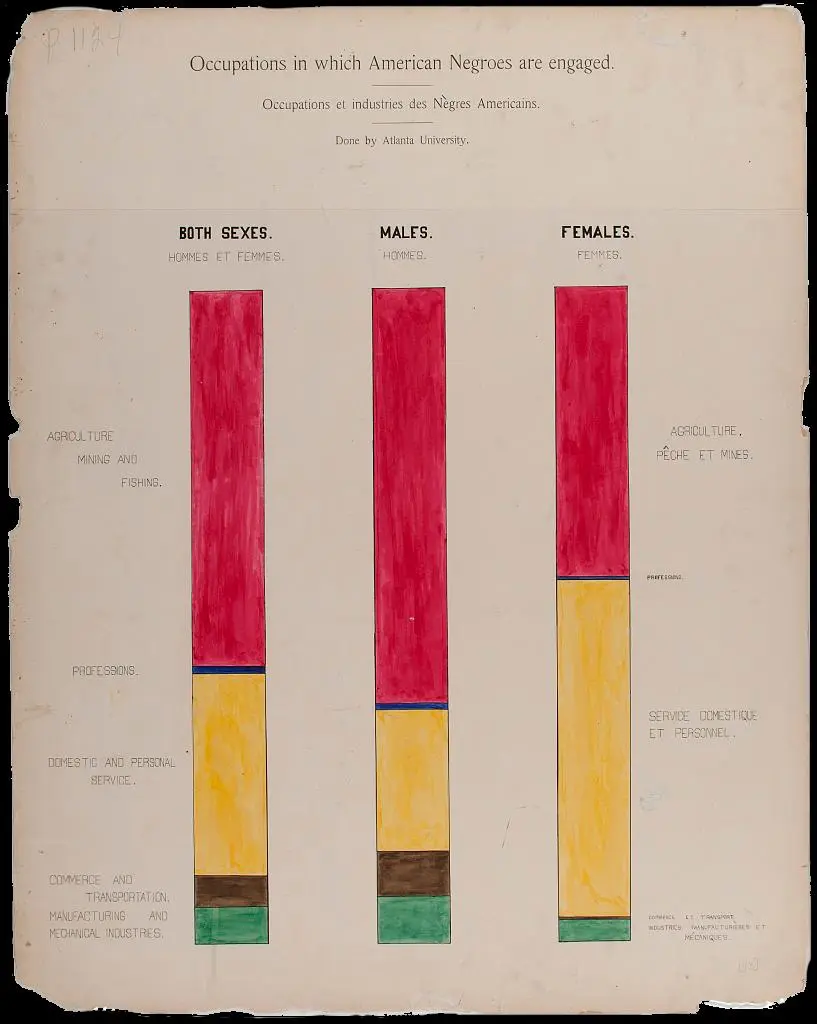 P 1124
Occupations in which American Negroes are engaged.
Occupations et industries des Nègres Americains.
Done by Atlanta University.
BOTH SEXES.
HOMMES ET FEMMES.
MALES.
HOMMES.
FEMALES.
FEMMES.
AGRICULTURE
MINING AND
FISHING.
PROFESSIONS.
DOMESTIC AND PERSONAL
SERVICE.
COMMERCE AND
TRANSPORTATION.
MANUFACTURING AND
MECHANICAL INDUSTRIES.
AGRICULTURE,
PÊCHE ET MINES.
PROFESSIONS.
SERVICE DOMESTIQUE
ET PERSONNEL.
COMMERCE ET TRANSPORT.
INDUSTRIES MANUFACTURIÈRES ET
MÉCANIQUES.